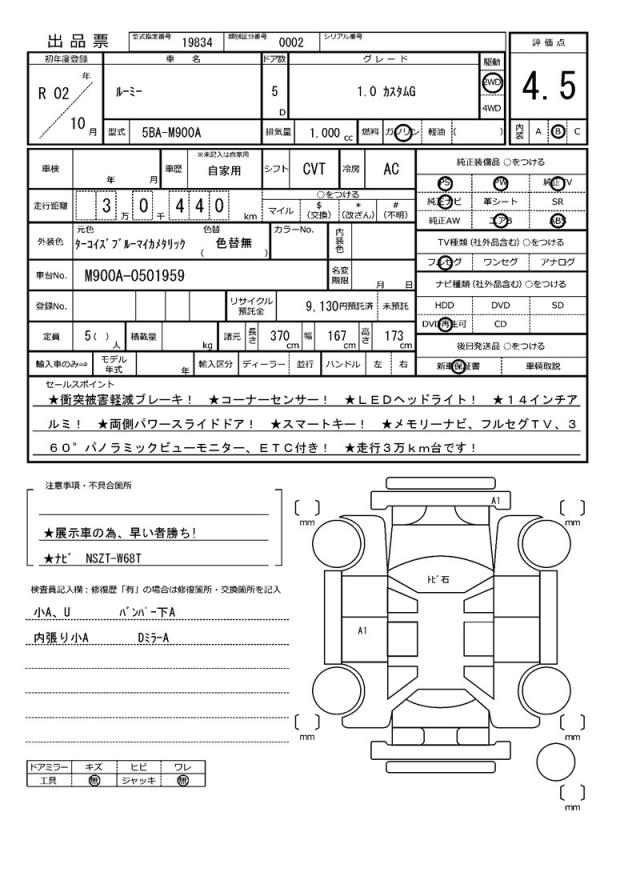 出品票 型式指定番号 19834 類別区分番号 0002 シリアル番号
評価点
初年度登録 車名 ドア数 グレード 駆動
R 02 年 ルーミー 5 D 1.0 カスタムG 2WD 4.5
4WD
10 月 型式 5BA-M900A 排気量 1.000 cc 燃料 ガソリン 軽油 ( ) 内装 A B C
車検 年 月 車歴 ※未記入は自家用 自家用 シフト CVT 冷房 AC 純正装備品 ○をつける
PS PW 純正TV
走行距離 3 万 0 千 4 4 0 km ○をつける 純正ナビ 革シート SR
マイル $(交換) *(改ざん) #(不明) 純正AW エアB ABS
外装色 元色 ターコイズブルーマイカメタリック 色替 ( 色替無 ) カラーNo. 内装色 TV種類(社外品含む)○をつける
フルセグ ワンセグ アナログ
車台No. M900A-0501959 名変期限 月 日 ナビ種類(社外品含む)○をつける
登録No. リサイクル預託金 9,130円預託済 未預託 HDD DVD SD
DVD再生可 CD
定員 5( )人 積載量 kg 諸元 長さ 370 cm 幅 167 cm 高さ 173 cm 後日発送品 ○をつける
輸入車のみ⇒ モデル年式 年 輸入区分 ディーラー 並行 ハンドル 左 右 新車保証書 車輌取説
セールスポイント
★衝突被害軽減ブレーキ! ★コーナーセンサー! ★LEDヘッドライト! ★14インチア
ルミ! ★両側パワースライドドア! ★スマートキー! ★メモリーナビ、フルセグTV、3
60°パノラミックビューモニター、ETC付き! ★走行3万km台です!
注意事項・不具合箇所
★展示車の為、早い者勝ち!
★ナビ NSZT-W68T
検査員記入欄:修復歴「有」の場合は修復箇所・交換箇所を記入
小A、U バンパー下A
内張り小A DミラーA
ドアミラー キズ ヒビ ワレ
工具 無 ジャッキ 無
A1
[ ] mm
[ ] mm
トビ石
A1
[ ] mm
[ ] mm
[ ] mm